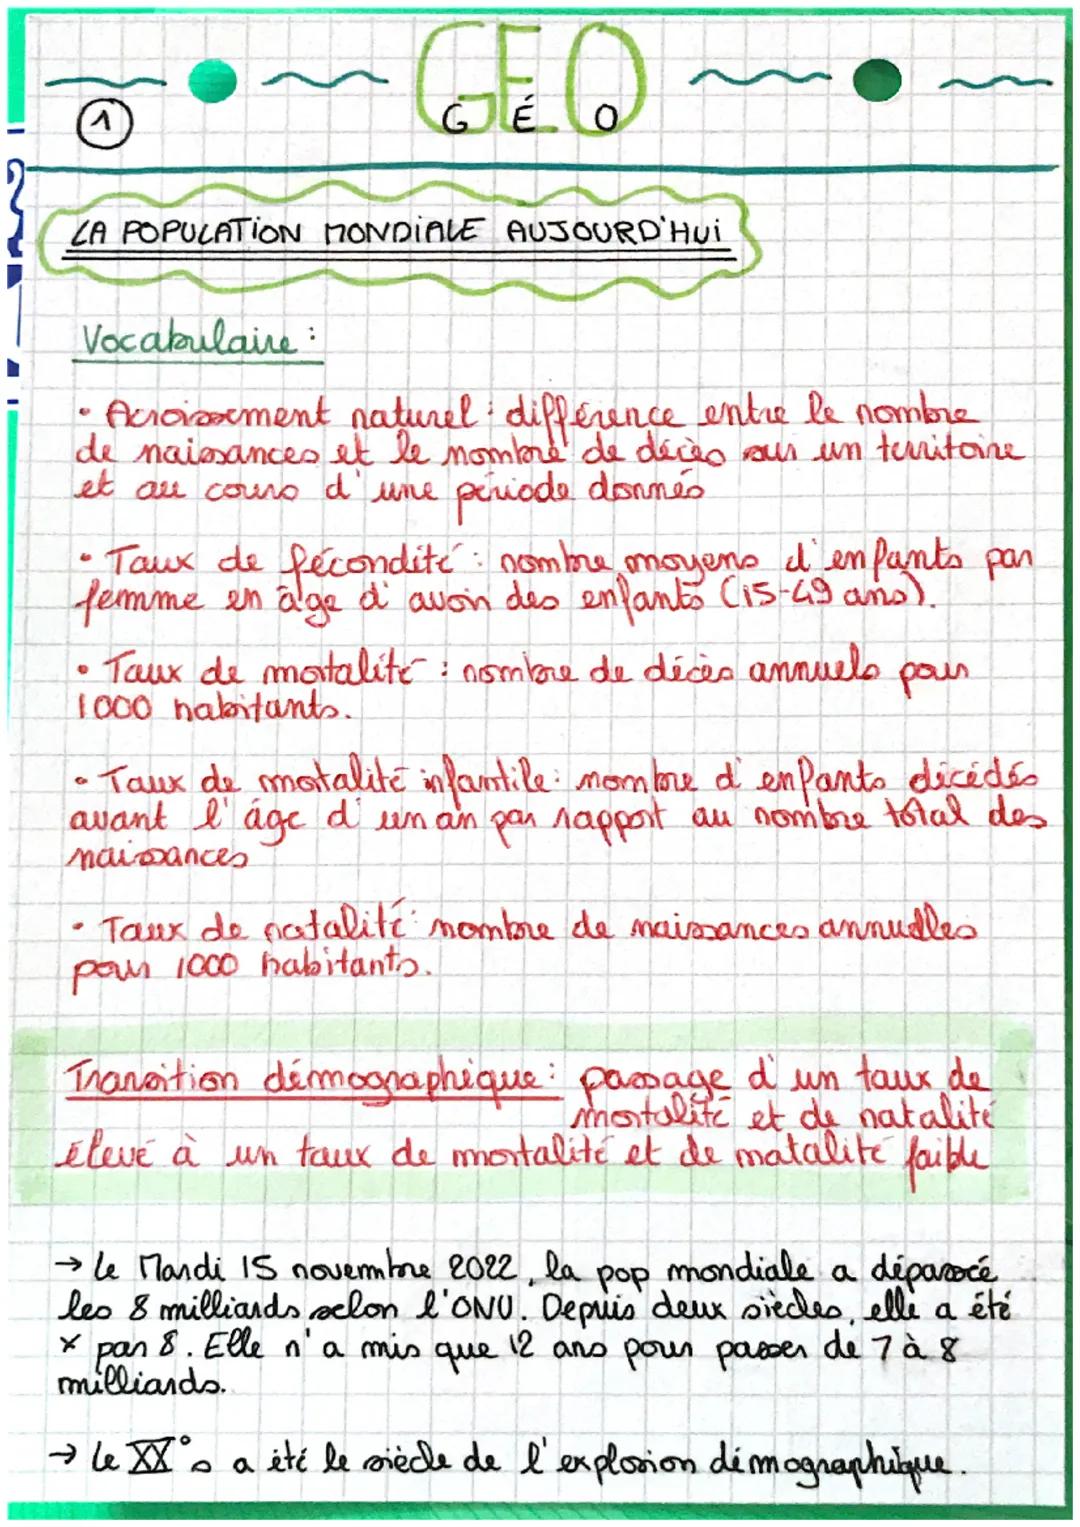 GEO
GÉO
1
LA POPULATION MONDIALE AUJOURD'HUI
Vocabulaire :
• Acroissement naturel : différence entre le nombre
de naissances et le nombre de décès sur un territoire
et au cours d'une période donnés
• Taux de fécondité : nombre moyens d'enfants par
femme en âge d'avoir des enfants (15-49 ans).
• Taux de mortalité : nombre de décès annuels pour
1000 habitants.
• Taux de mortalité infantile : nombre d'enfants décédés
avant l'âge d'un an par rapport au nombre total des
naissances
• Taux de natalité : nombre de naissances annuelles
pour 1000 habitants.
Transition démographique : passage d'un taux de
mortalité et de natalité
élevé à un taux de mortalité et de natalité faible
→ Le Mardi 15 novembre 2022, la pop mondiale a dépassé
les 8 milliards selon l'ONU. Depuis deux siècles, elle a été
× par 8. Elle n'a mis que 12 ans pour passer de 7 à 8
milliards.
→ Le XX° s a été le siècle de l'explosion démographique.